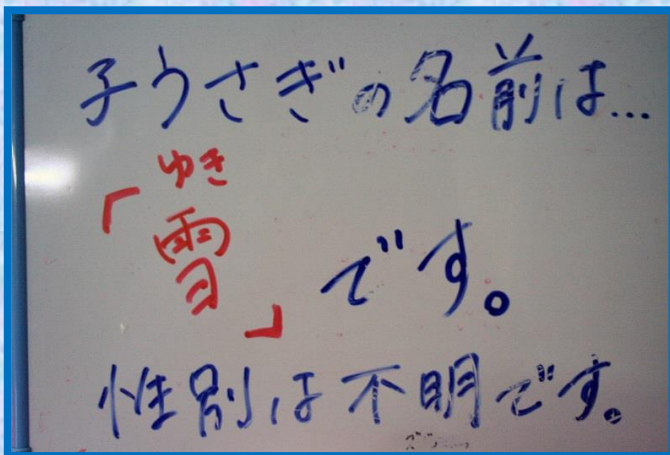 子うさぎの名前は...
ゆき
「雪」です。
性別は不明です。